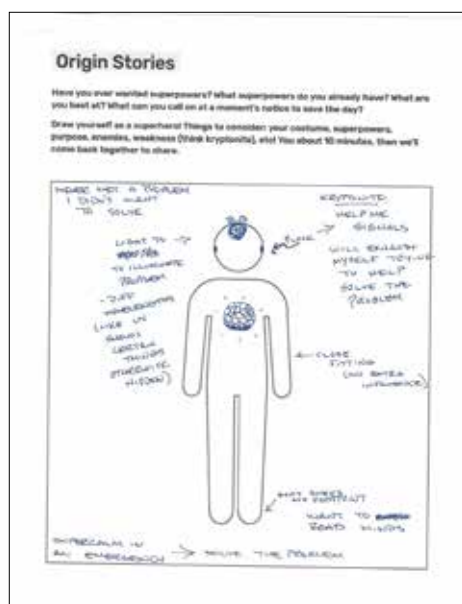 Origin Stories
Have you ever wanted superpowers? What superpowers do you already have? What are
you best at? What can you call on at a moment's notice to save the day?
Draw yourself as a superhero! Things to consider: your costume, superpowers,
purpose, enemies, weakness (think kryptonite), etc! You about 10 minutes, then we'll
come back together to share.
NEVER MET A PROBLEM
I DIDN'T WANT
TO SOLVE
LIGHT TO
TO ILLUMINATE
PROBLEM
- DIFF
WAVELENGTHS
(LIKE UV
SHOWS
CERTAIN
THINGS
OTHERWISE
HIDDEN)
KRYPTONITE
HELP ME
SIGNALS
WILL EXHAUST
MYSELF TRYING
TO HELP
SOLVE THE
PROBLEM
CLOSE
FITTING
(NO EXTRA
WANT TO
READ MINDS
SUPERCALM IN
AN EMERGENCY → SOLVE THE PROBLEM